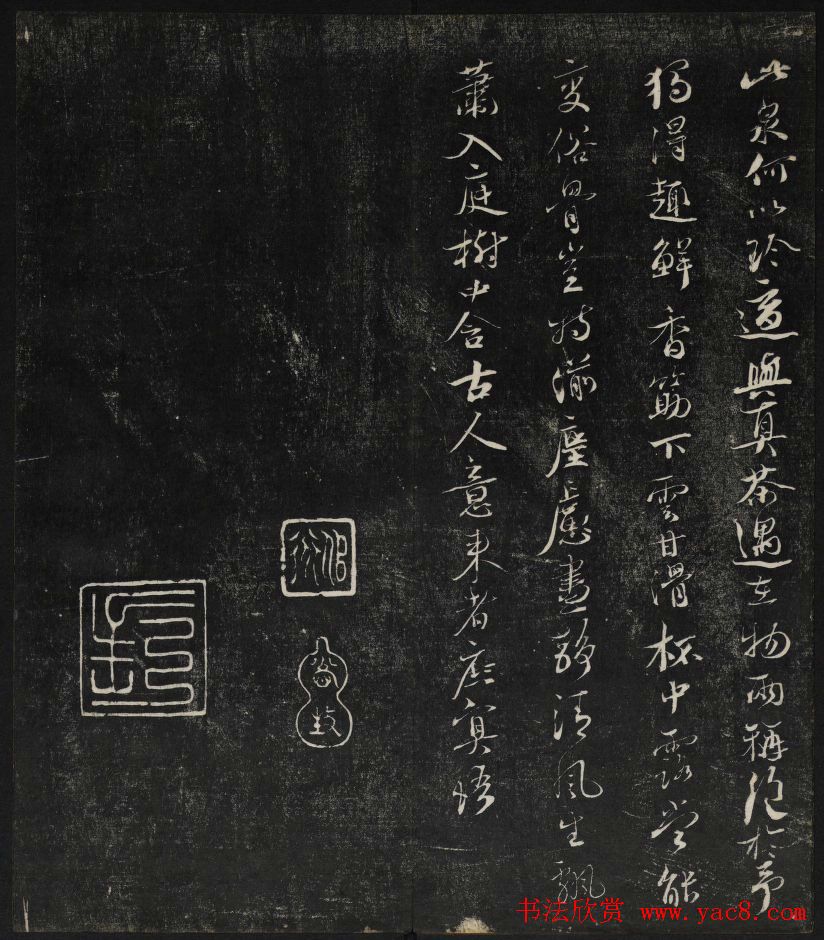 此泉何以珍適與真茶遇在物兩稱絶於予
獨得趣鮮香筯下雲甘滑杯中露當能
變俗骨豈特湔塵慮晝靜清風生飄
蕭入庭樹中含古人意來者庶冥悟
书法欣赏 www.yac8.com